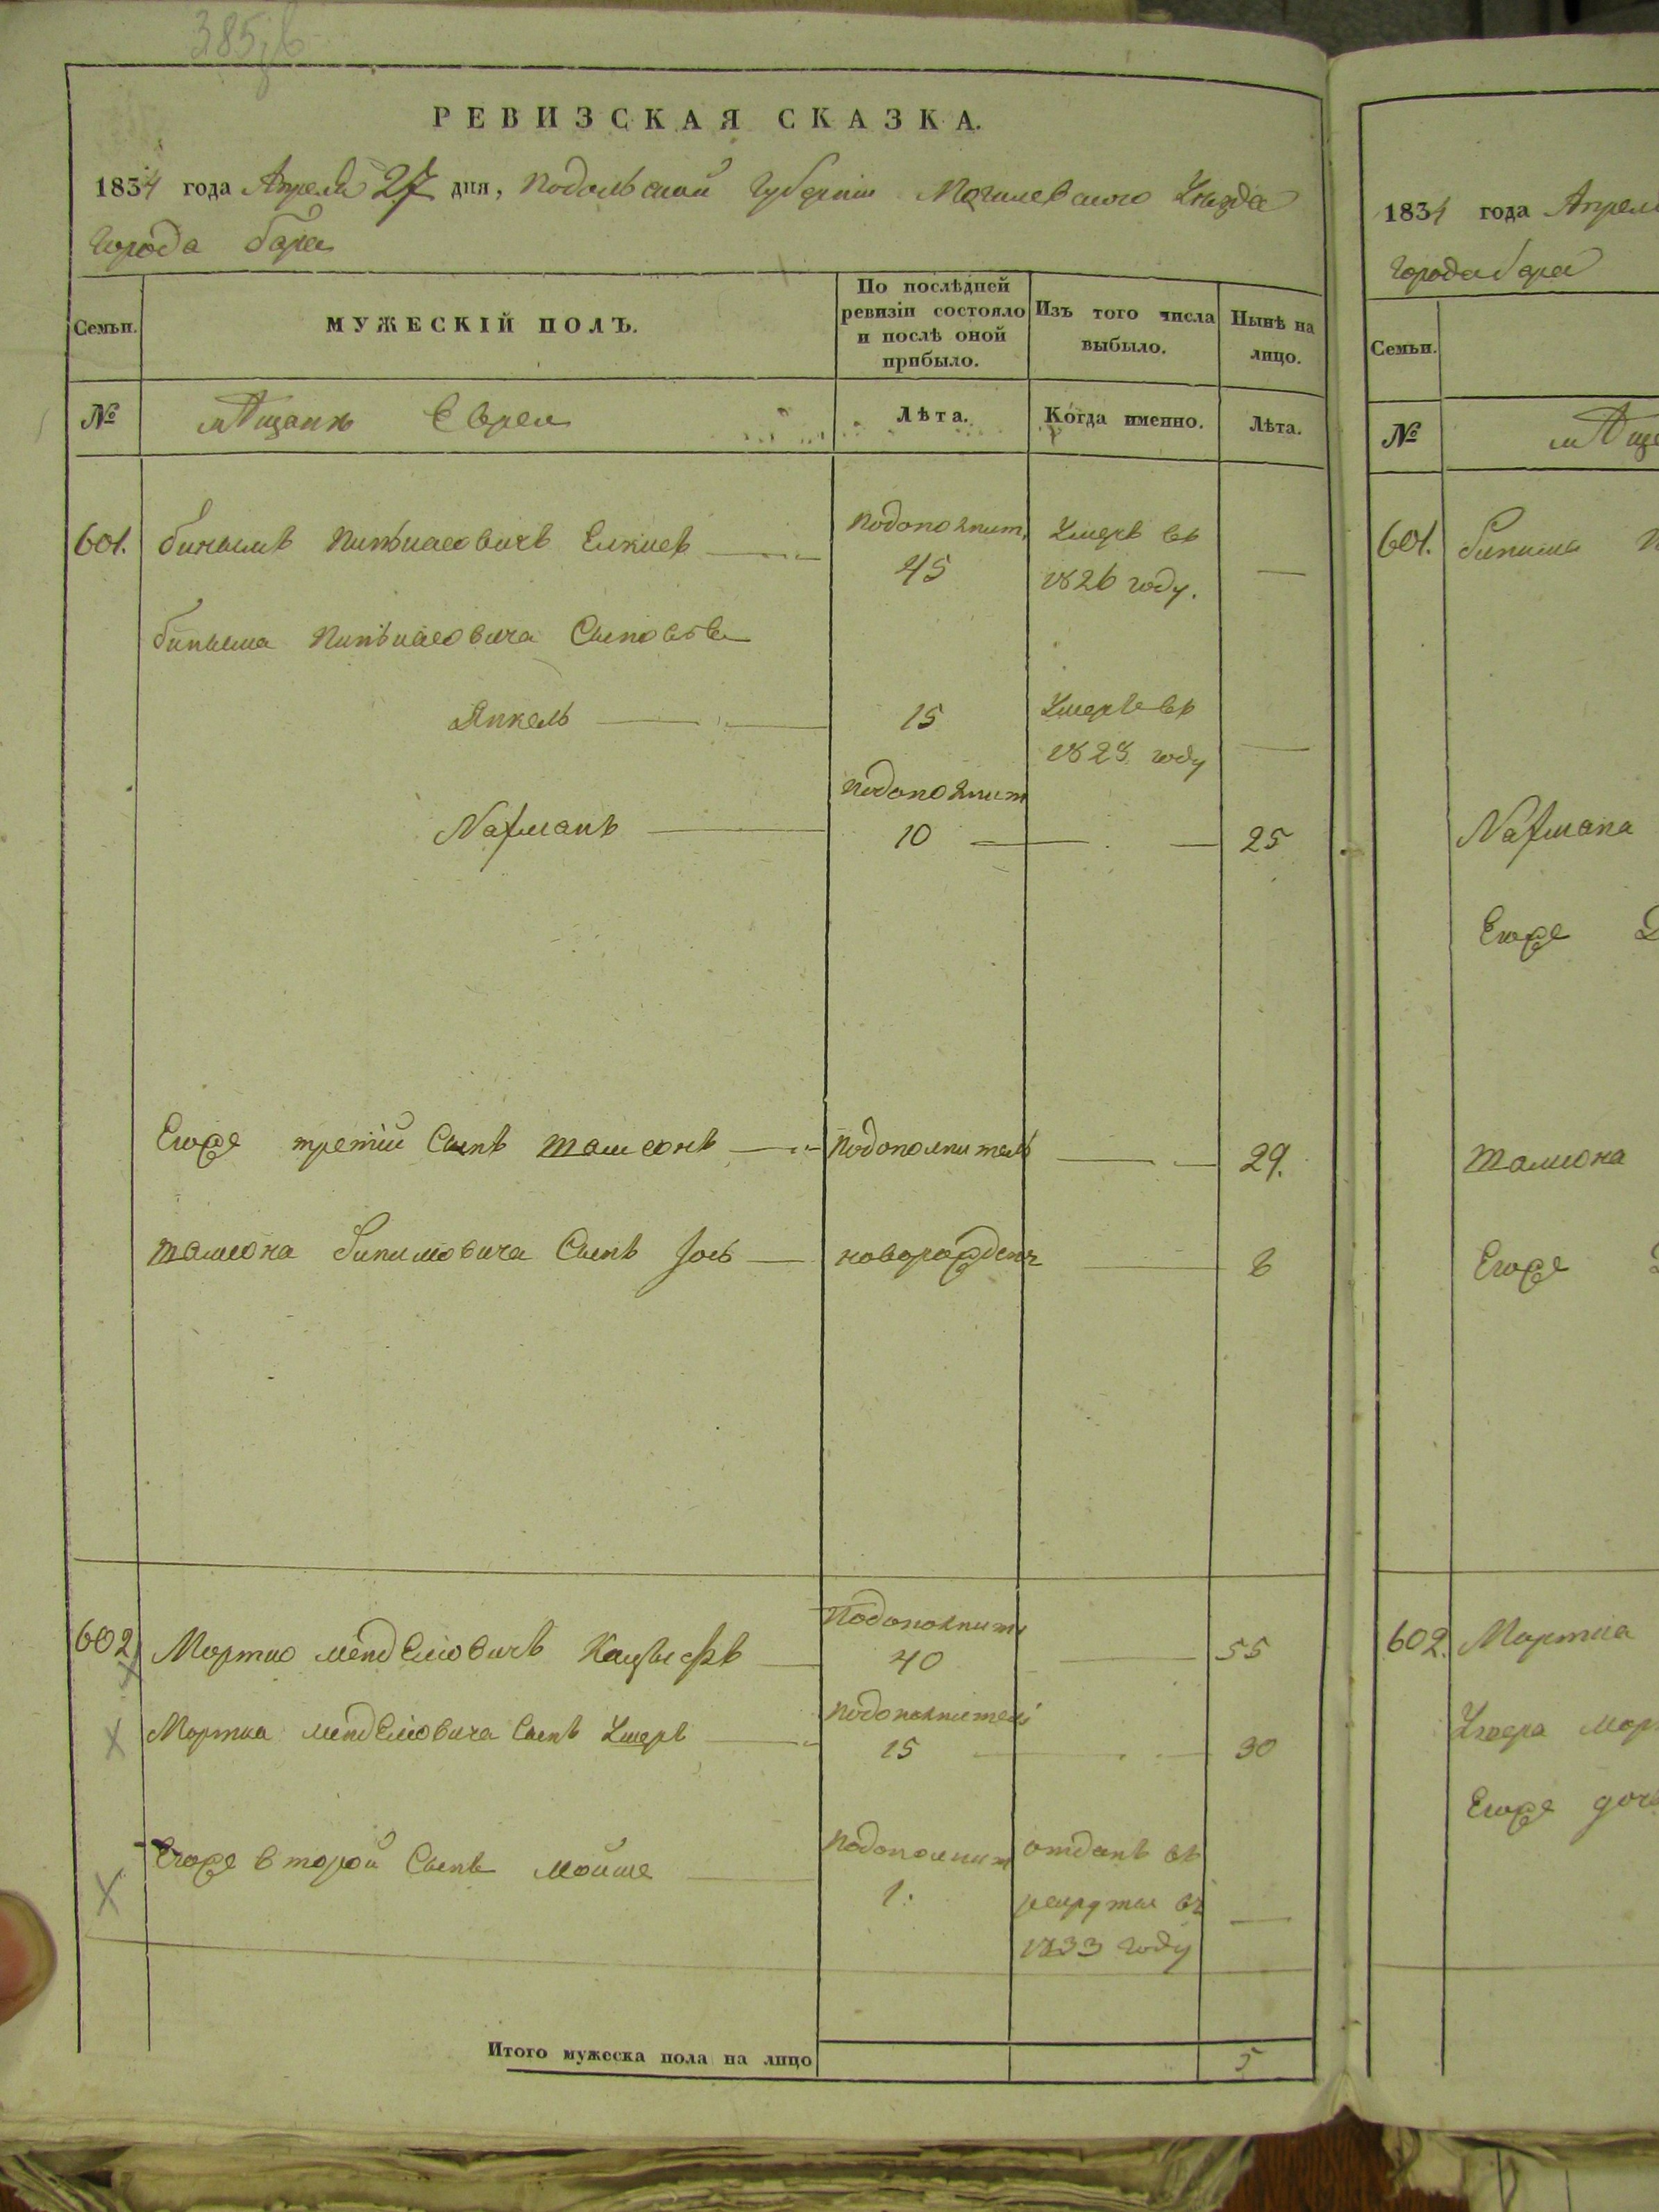 385
РЕВИЗСКАЯ СКАЗКА.
1834 года Апреля 27 дня, Подольской Губернии Могилевского Уезда
Города бара
Семьи. МУЖЕСКІЙ ПОЛЪ. По послѣдней ревизіи состояло и послѣ оной прибыло. Изъ того числа выбыло. Нынѣ на лицо.
№ мѣщанъ Евреи Лѣта. Когда именно. Лѣта.
601. бинымъ Пинкасовичъ подополнит. 45 Умеръ въ 1826 году. —
биныма Пинкасовича Сыновья
Янкель 15 Умеръ въ 1828 году —
Nахманъ подополнит 10 — 25
Егоже третій Сынъ Шамсонъ подополнитель — 29.
Шамсона Бинимовича Сынъ Іось новорожденъ 8
602 Мортко менделіовичъ подополнит 40 55
Мортка менделіовича Сынъ Ушеръ подополнитель 15 30
Егоже второй Сынъ мойше подополнит 1. отданъ въ рекруты въ 1833 году —
Итого мужеска пола на лицо 5
1834 года Апреля
Города бара
Семьи.
№ мѣща
601. Бинима
Nахмана
Егоже
Шамсона
Егоже
602. Мортка
Ушера Морт
Егоже доч